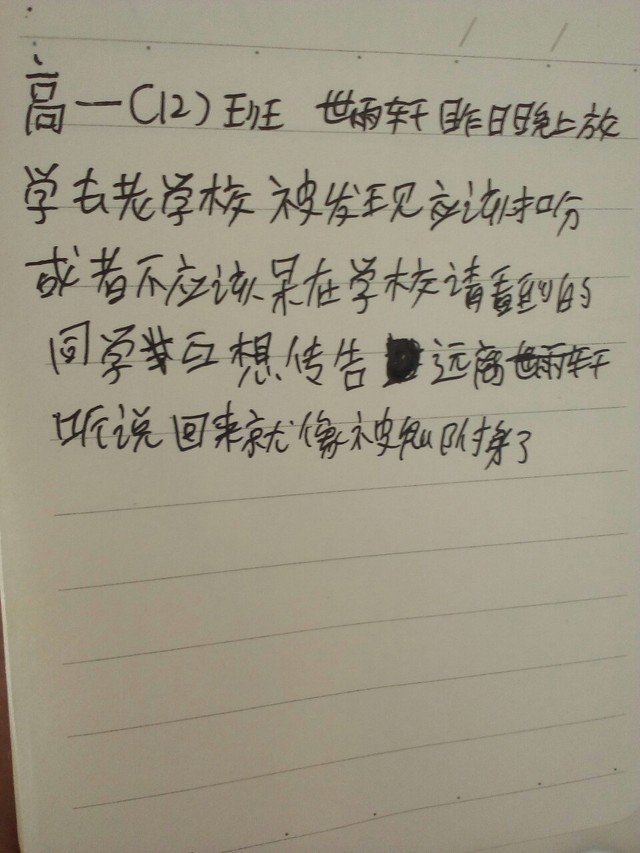 高一(12)班 世雨轩昨日晚上放
学去老学校被发现应该扣分
或者不应该呆在学校请看到的
同学互想传告 远离世雨轩
听说回来就像被鬼附身了